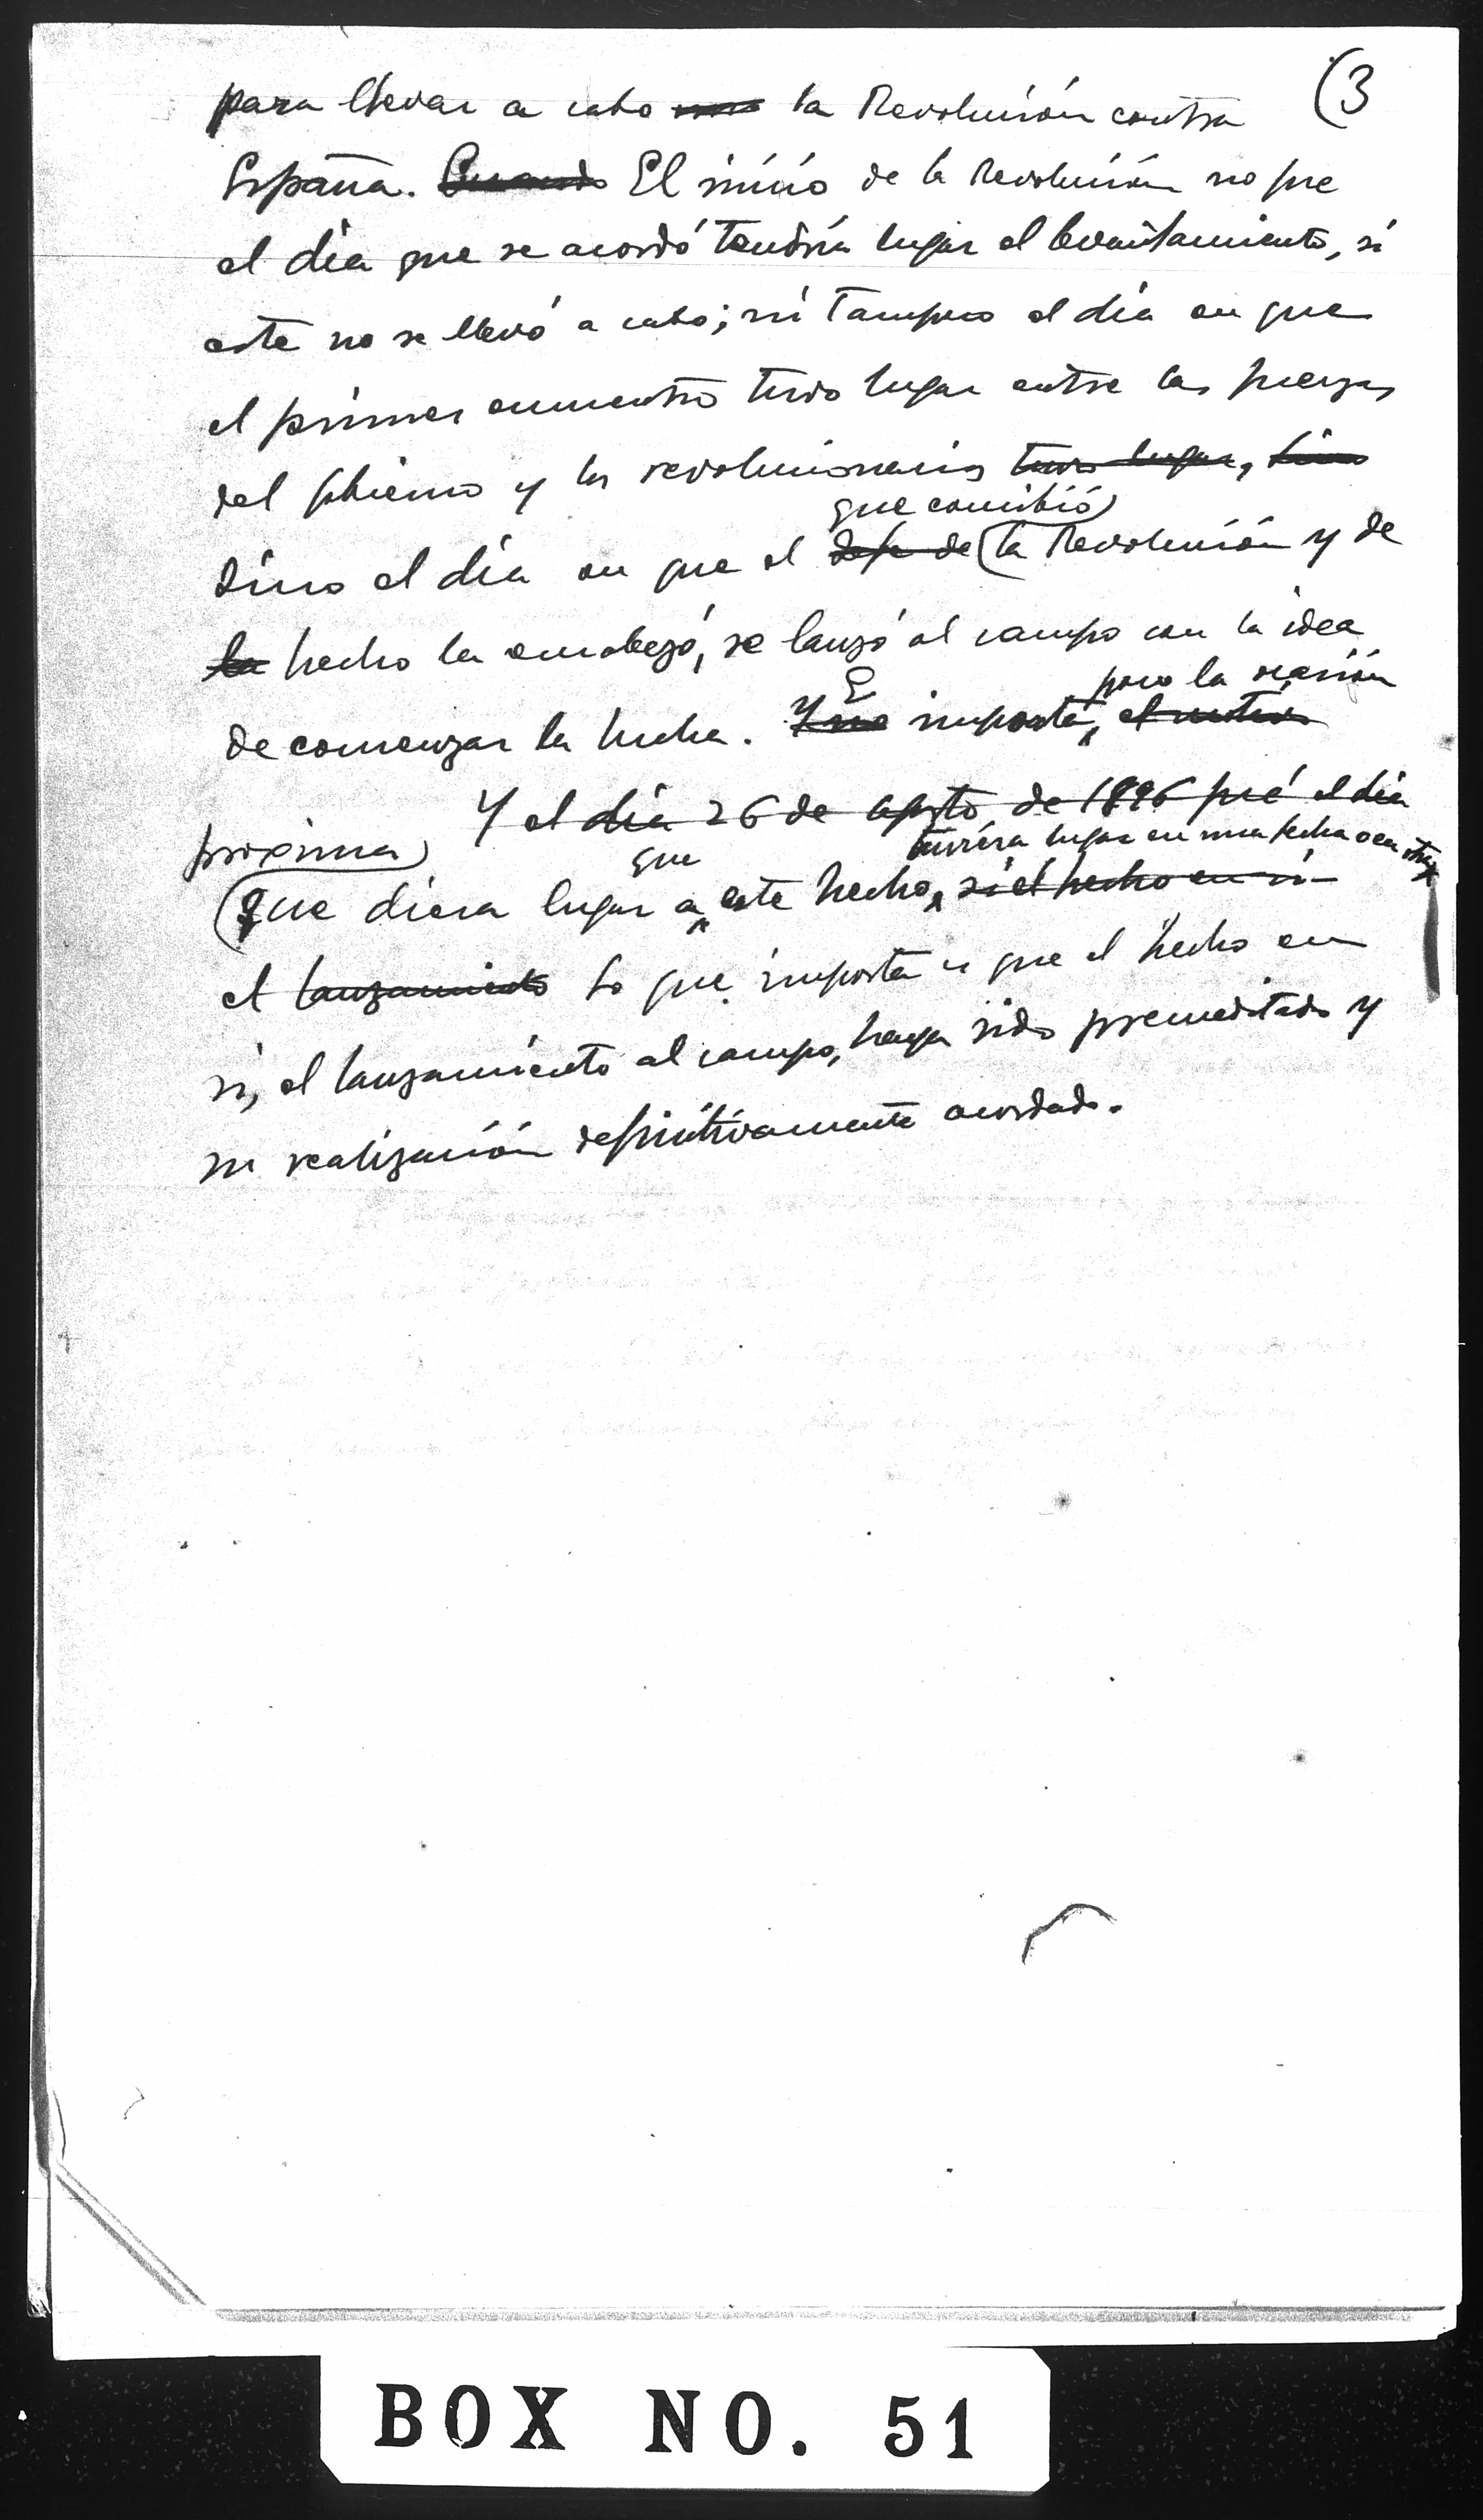 (3
para llevar a cabo la Revolución contra
España. Cuando El inicio de la Revolución no fue
el día que se acordó tendría lugar el levantamiento, si
este no se llevó a cabo; ni tampoco el día en que
el primer encuentro tuvo lugar entre las fuerzas
del gobierno y los revolucionarios tuvo lugar, sino
que concibió
sino el día en que el jefe de (la Revolución y de
la hecho la encabezó, se lanzó al campo con la idea
poco la ocasión
de comenzar la lucha. Y no importa, el motivo
Y el día 26 de agosto de 1896 fué el día
proxima) que tuviera lugar en una fecha o en otra
(que diera lugar a este hecho, si el hecho en si
el lanzamiento Lo que importa es que el hecho en
si, el lanzamiento al campo, haya sido premeditado y
su realización definitivamente acordado.
BOX NO. 51